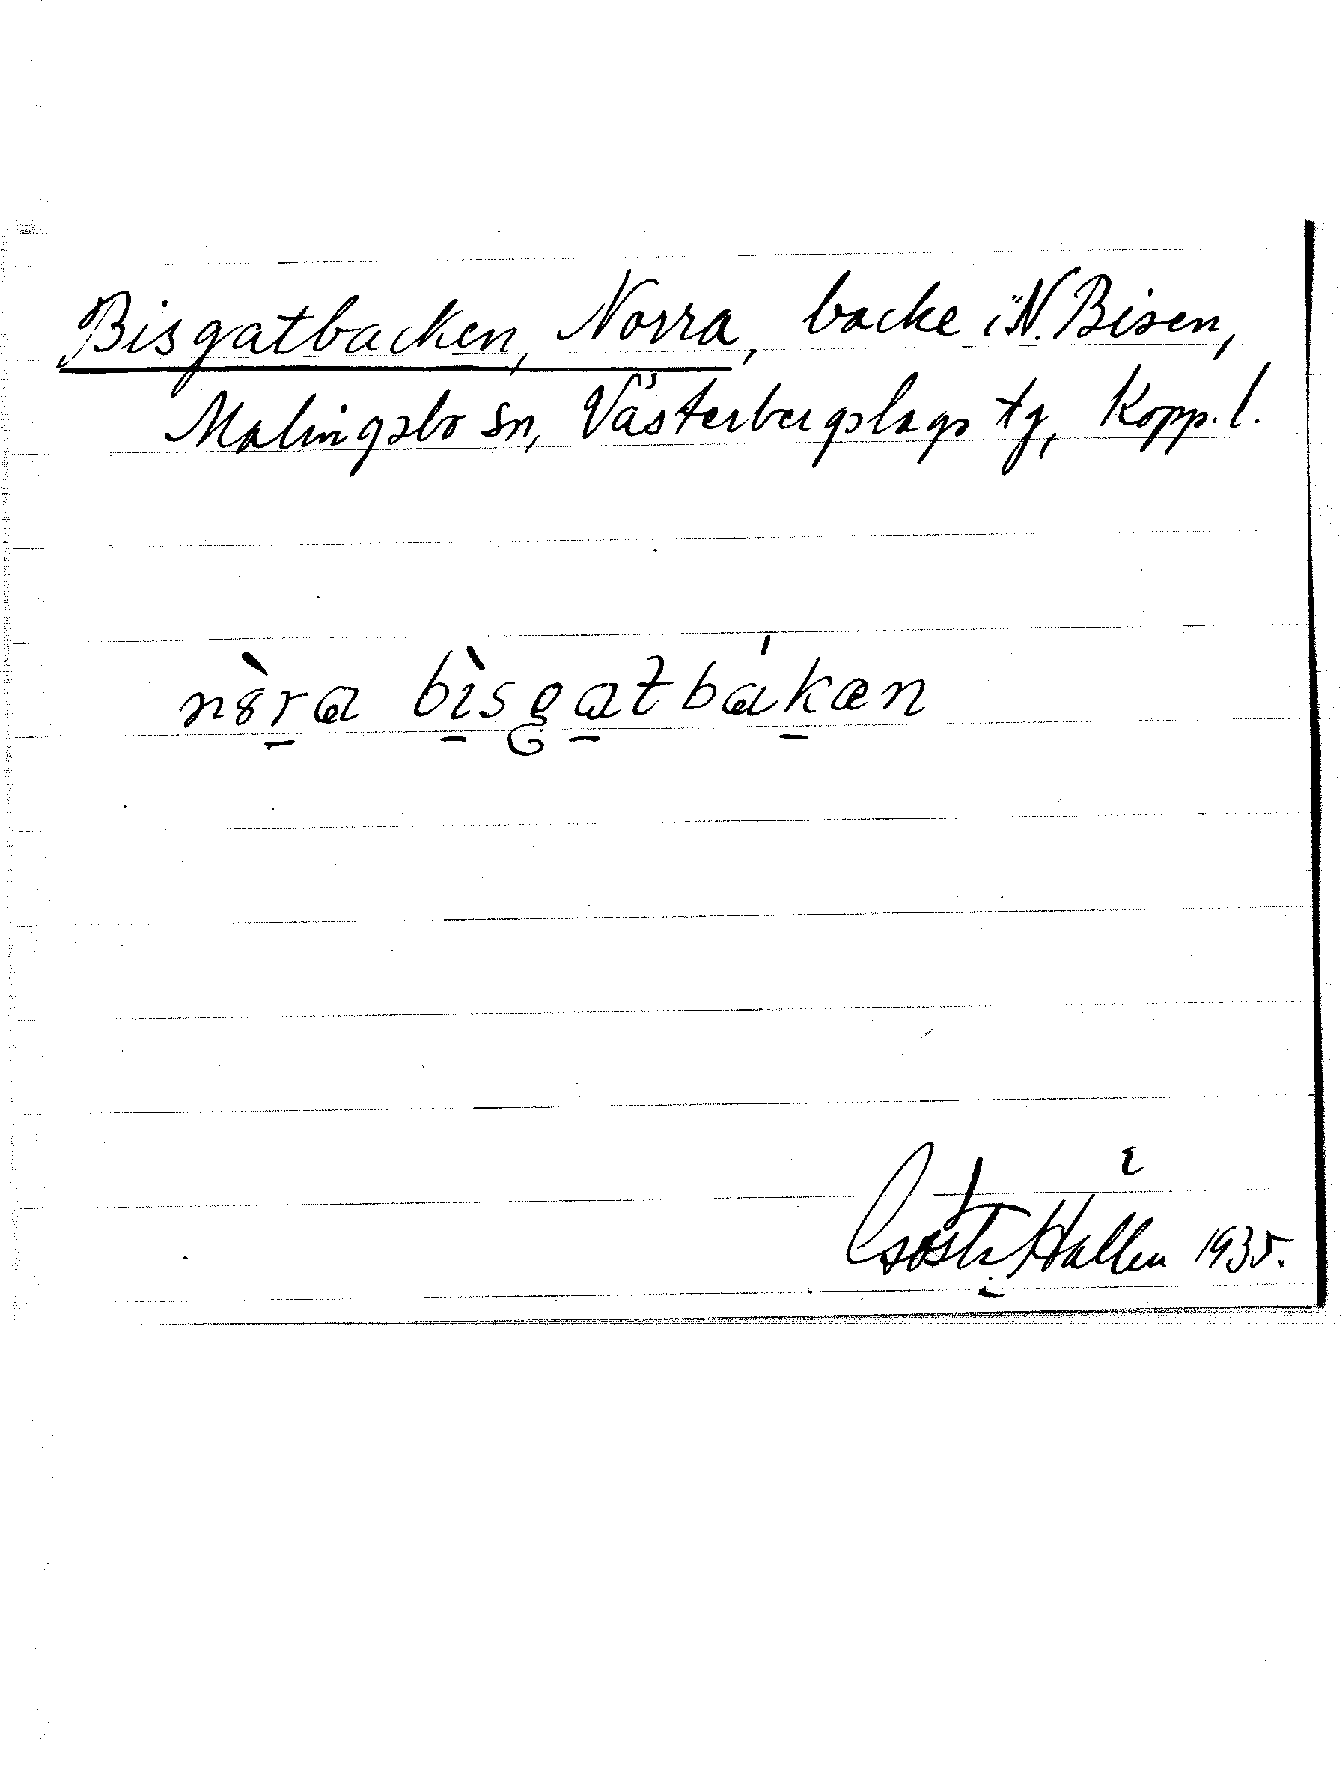 Bisgatbacken, Norra, backe i N. Bisen,
Malingsbo sn, Västerbergslags tg, Kopp. l.
nòra bìsgatbákæn
Gösta Hallén 1935.